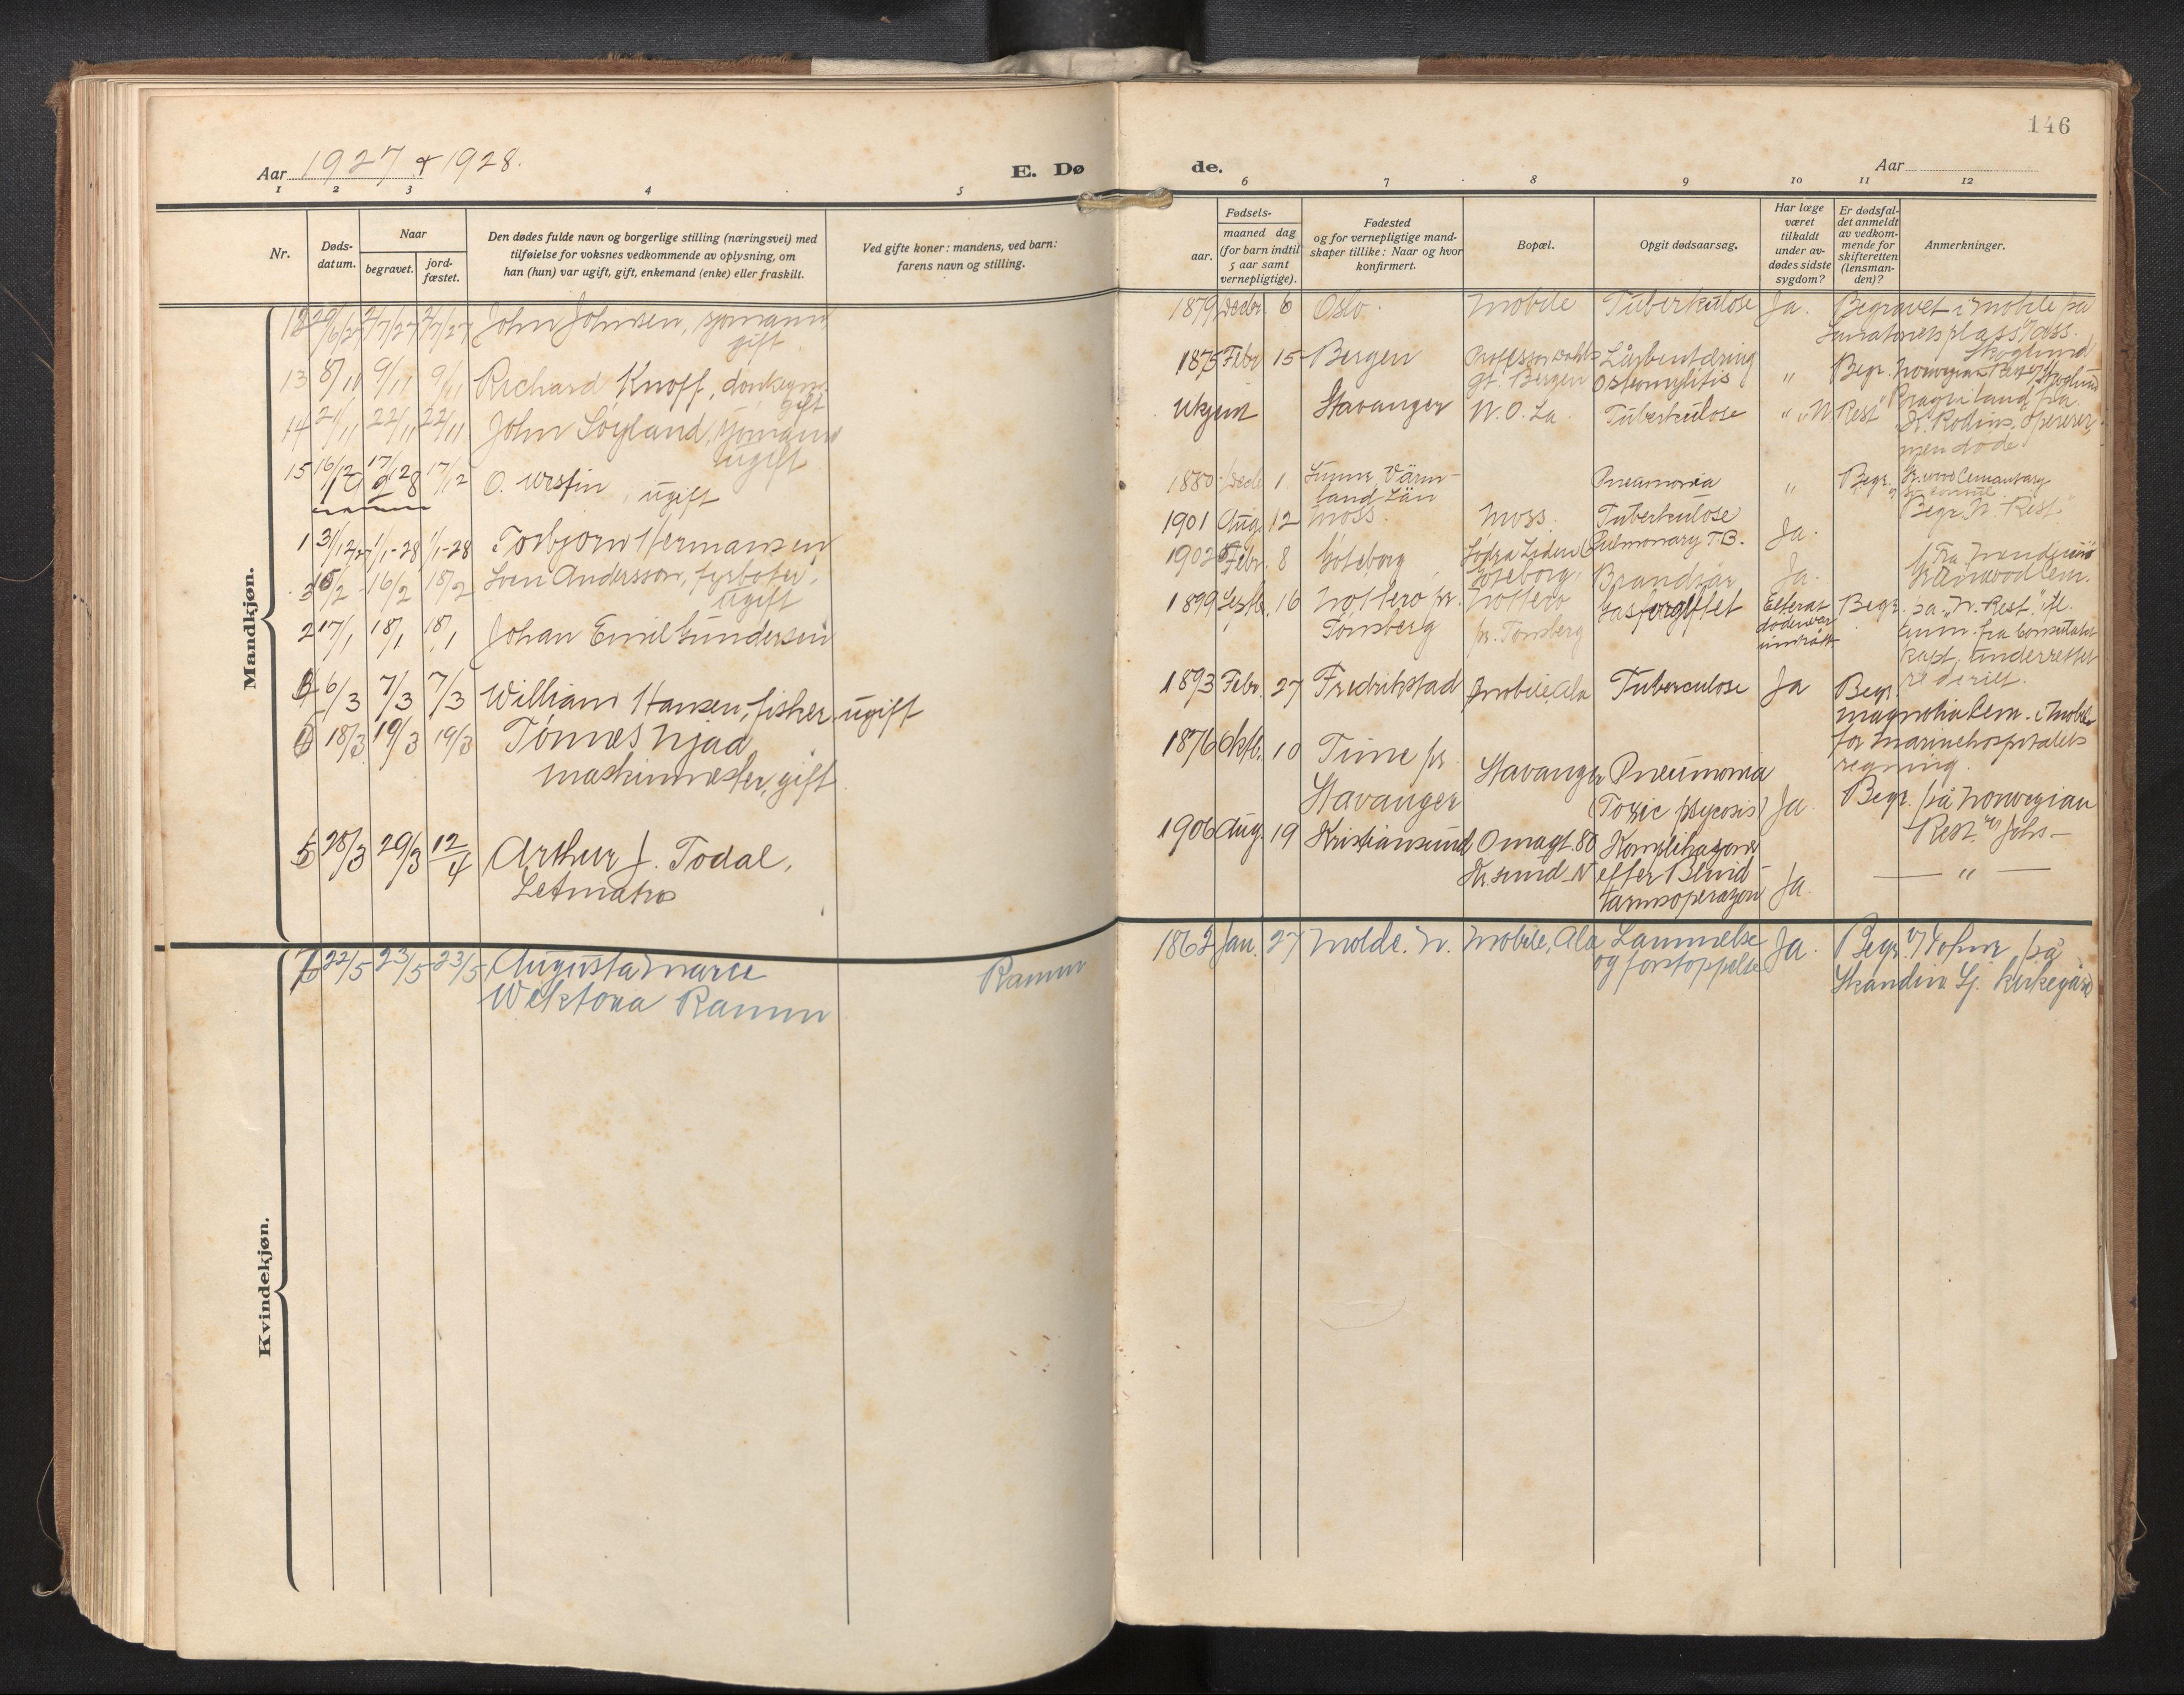 146
Aar 1927 & 1928.
E. Dø
de.
Aar
1 2 3 4 5 6 7 8 9 10 11 12
Nr.
Døds-
datum.
Naar
begravet.
jord-
fæstet.
Den dødes fulde navn og borgerlige stilling (næringsvei) med
tilføielse for voksnes vedkommende av oplysning, om
han (hun) var ugift, gift, enkemand (enke) eller fraskilt.
Ved gifte koner: mandens, ved barn:
farens navn og stilling.
Fødsels-
aar.
maaned dag
(for barn indtil
5 aar samt
vernepligtige).
Fødested
og for vernepligtige mand-
skaper tillike: Naar og hvor
konfirmert.
Bopæl.
Opgit dødsaarsag.
Har læge
været
tilkaldt
under av-
dødes sidste
sygdom?
Er dødsfal-
det anmeldt
av vedkom-
mende for
skifteretten
(lensman-
den)?
Anmerkninger.
Mandkjøn.
12 29/6/27 2/7/27 2/7/27 John Johnsen, sjømann
gift
1879 Decbr. 6 Oslo. Mobile Tuberkulose Ja. Begravet i Mobile på
Sanatoriets plass v/ass.
Skoglund
13 8/11 9/11 9/11 Richard Knoff, donkeym.
gift
1875 Febr 15 Bergen Professor Dahls
gt. Bergen
Lårbentæring
Osteomylitis
" Begr. Norwegian Rest v/Skoglund
14 21/11 22/11 22/11 John Søyland, sjømann
ugift
Ukjent Stavanger N.O. La. Tuberkulose " " N Rest "Pragerland" fra
Dr. Rodins. Operører,
men døde
15 16/12 17/12 28 17/12 O. Westin, ugift
1880 Decb 1 Sunne, Värm-
land Län
Pneumonia " Begr.
1 31/12/27 1/1-28 1/1-28 Torbjørn Hermansen
1901 Aug. 12 Moss. Moss. Tuberkulose Ja. Begr. N. Rest"
3 15/2 16/2 18/2 Sven Andersson, fyrbøter,
ugift
1902 Febr. 8 Göteborg Södra Liden
Göteborg,
Pulmonary T.B. Ja.
2 17/1 18/1 18/1 Johan Emil Gundersen
1899 Septb. 16 Nøtterø pr.
Tønsberg
Nøtterø
pr. Tønsberg
Brandsår
Gasforgiftet
Efterat
døden var
inntrådt
Begr. på "N. Rest", efl.
anm. fra Consulatet
kapt. underrettet
rederiet.
4 6/3 7/3 7/3 William Hansen, fisher, ugift
1893 Febr. 27 Fredrikstad Mobile, Ala Tuberculose Ja Begr.
Magnolia Cem. i Mobile
for Marinehospitalets
regning.
18/3 19/3 19/3 Tønnes Njad
maskinmester, gift
1876 Oktb. 10 Time pr.
Stavanger
Stavanger Pneumonia
(Toxic psycosis) Ja. Begr. på Norwegian
Rest. v/ Johs—
5 28/3 29/3 12/4 Arthur J. Todal,
Letmatros
1906 Aug. 19 Kristiansund Omagt. 80
Kr.sund-N
Komplikasjoner
efter Blind-
tarmsoperasjon Ja. — " —
Kvindekjøn.
22/5 23/5 23/5 Augusta Marie
Wiktoria Ramm
Ramm
1862 Jan. 27 Molde. N. Mobile, Ala Lammelse
og forstoppelse Ja. Begr. v/ Johns på
Skandin Sj. kirkegård